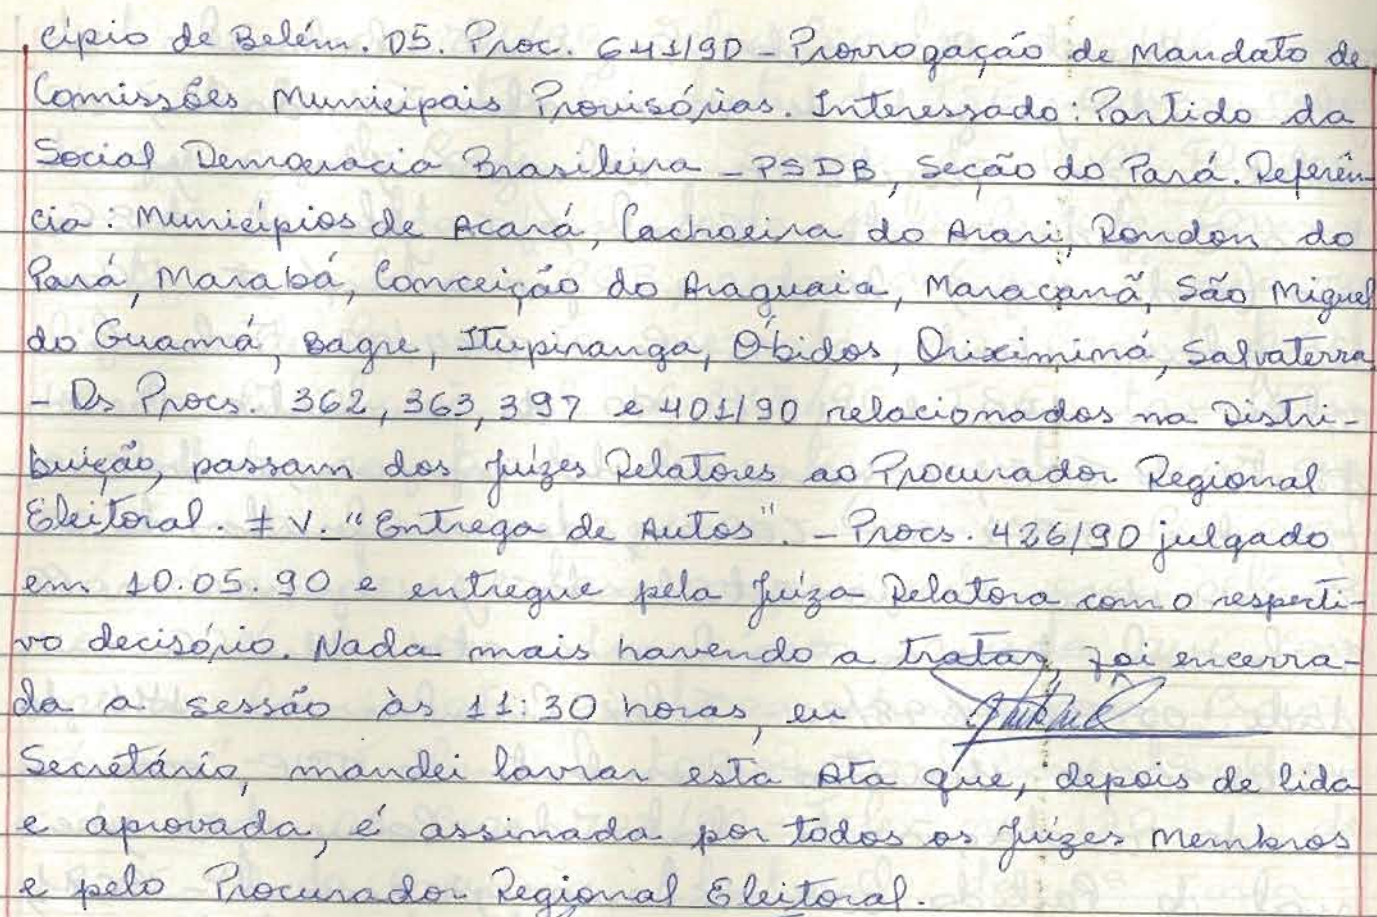 cípio de Belém. 05. Proc. 641/90 - Prorrogação de Mandato de
Comissões Municipais Provisórias. Interessado: Partido da
Social Democracia Brasileira - PSDB, Seção do Pará. Referên-
cia: Municípios de Acará, Cachoeira do Arari, Rondon do
Pará, Marabá, Conceição do Araguaia, Maracanã, São Miguel
do Guamá, Bagre, Itupiranga, Óbidos, Oriximiná, Salvaterra
- Os Procs. 362, 363, 397 e 401/90 relacionados na Distri-
buição, passam dos Juízes Relatores ao Procurador Regional
Eleitoral. ‡ V. "Entrega de Autos". - Procs. 426/90 julgado
em 10.05.90 e entregue pela Juíza Relatora com o respecti-
vo decisório. Nada mais havendo a tratar, foi encerra-
da a sessão às 11:30 horas, eu
Secretário, mandei lavrar esta Ata que, depois de lida
e aprovada, é assinada por todos os Juízes Membros
e pelo Procurador Regional Eleitoral.